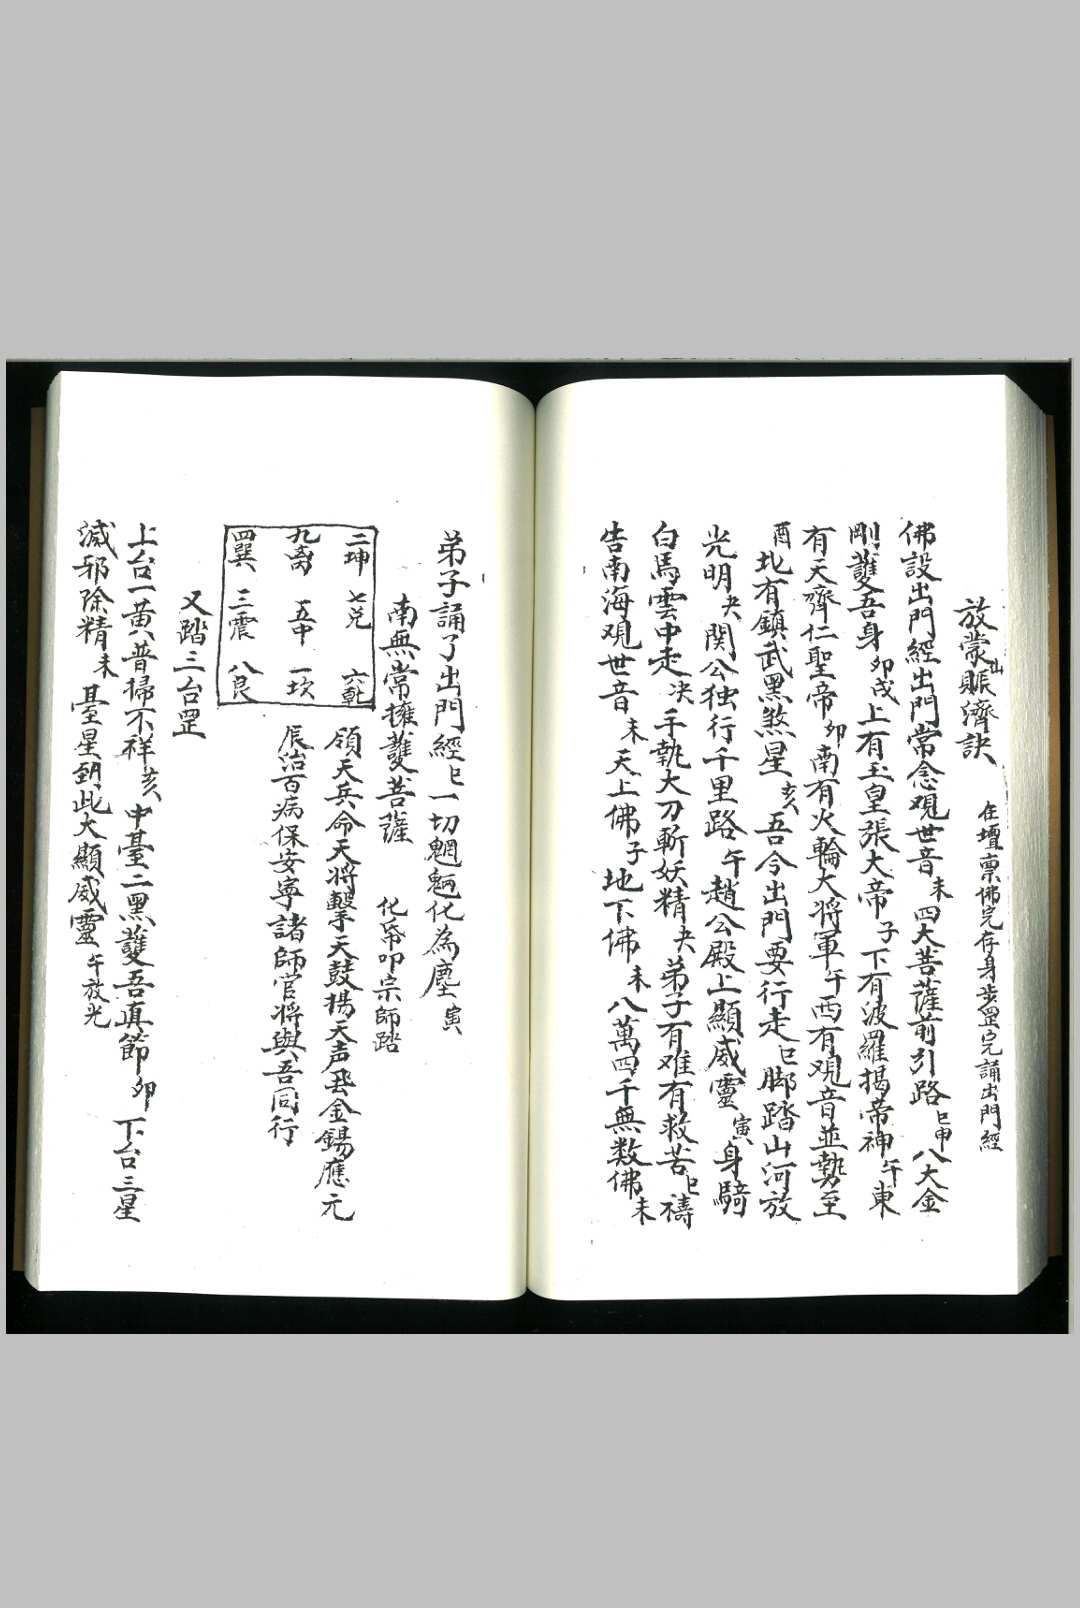 放蒙山賑濟訣 在壇稟佛完存身步罡完誦出門經
佛設出門經出門常念观世音未四大菩薩前引路巳申八大金
剛護吾身卯戌上有玉皇張大帝子下有波羅揭帝神午東
有天齊仁聖帝卯南有火輪大将軍午西有观音並勢至
酉北有鎮武黑煞星亥吾今出門要行走巳脚踏山河放
光明决関公独行千里路午趙公殿上顯威靈寅身騎
白馬雲中走决手執大刀斬妖精决弟子有难有救苦巳禱
告南海观世音未天上佛子地下佛未八萬四千無数佛未
弟子誦了出門經巳一切魍魎化為塵寅
南無常擁護菩薩 化帋叩宗師踏
二坤 七兑 六乾
九离 五中 一坎
四巽 三震 八艮
領天兵命天将擊天鼓揚天声飛金錫應元
辰治百病保安寧諸師官将與吾同行
又踏三台罡
上台一黄八普掃不祥亥中臺二黑護吾真節卯下台三星
滅邪除精未臺星到此大顯威靈午放光